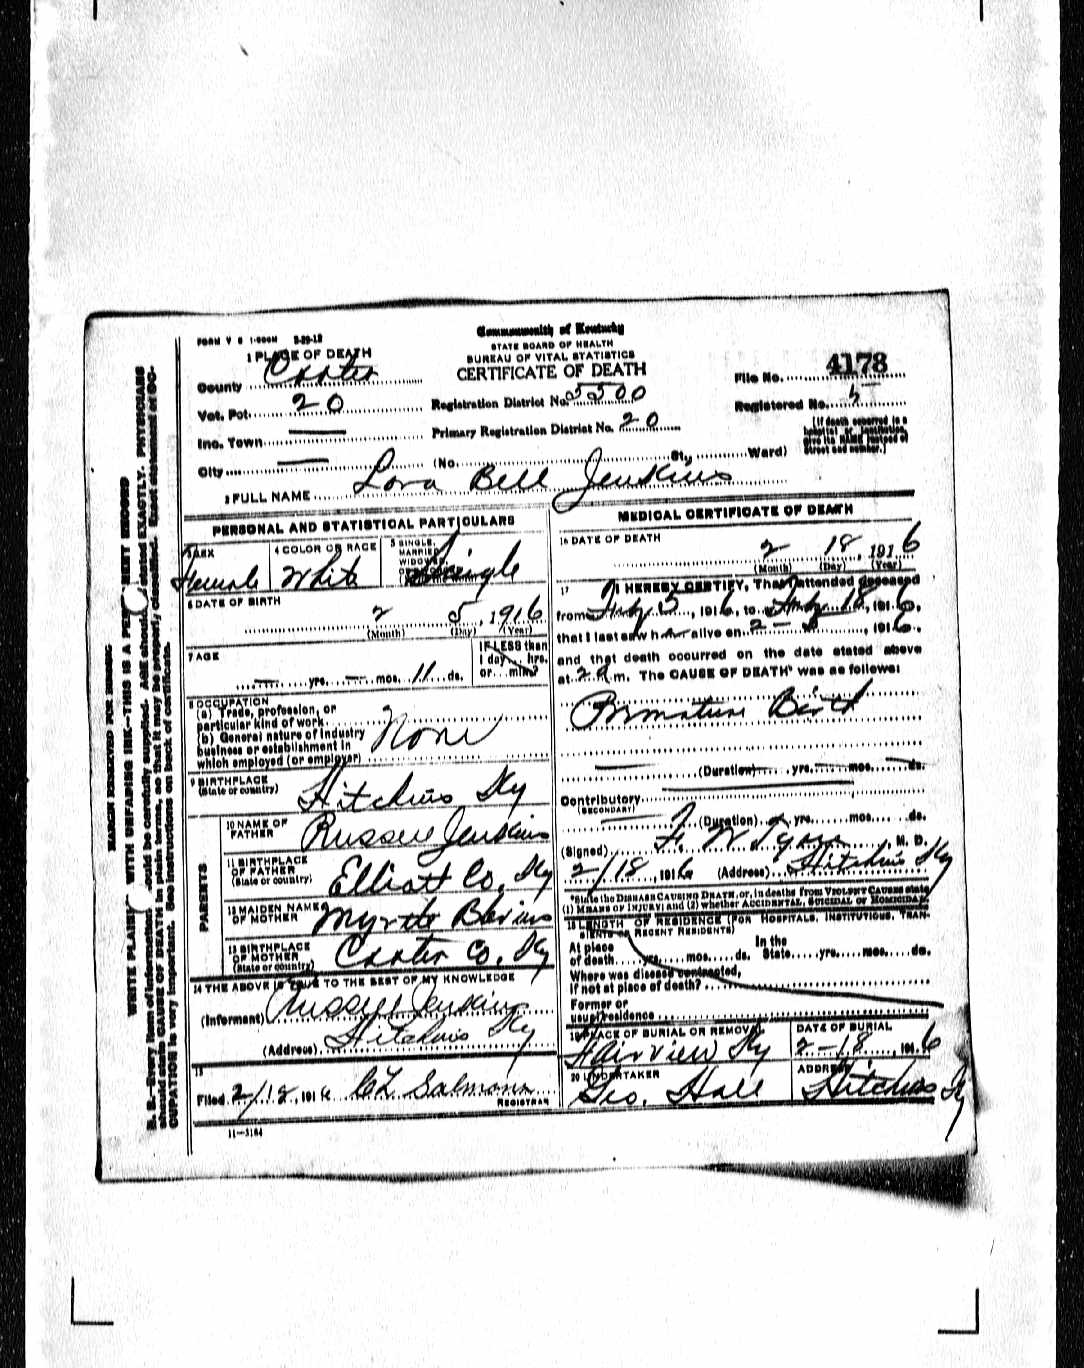 FORM V S 1-500M 5-29-12
Commonwealth of Kentucky
STATE BOARD OF HEALTH
BUREAU OF VITAL STATISTICS
CERTIFICATE OF DEATH
1 PLACE OF DEATH
County Carter
Vot. Pct. 20
Inc. Town —
City —
Registration District No. 5500
Primary Registration District No. 20
(No. St., Ward)
File No. 4178
Registered No. 5
[If death occurred in a hospital or institution, give its NAME instead of street and number.]
2 FULL NAME Lora Bell Jenkins
PERSONAL AND STATISTICAL PARTICULARS
3 SEX Female
4 COLOR OR RACE White
5 SINGLE, MARRIED, WIDOWED, Single
6 DATE OF BIRTH
2 5, 1916
(Month) (Day) (Year)
7 AGE
— yrs. — mos. 11 ds.
IF LESS than 1 day, hrs. or min?
8 OCCUPATION
(a) Trade, profession, or particular kind of work
(b) General nature of industry business or establishment in which employed (or employer)
None
9 BIRTHPLACE
(State or country) Hitchins Ky
PARENTS
10 NAME OF FATHER Russell Jenkins
11 BIRTHPLACE OF FATHER
(State or country) Elliott Co, Ky
12 MAIDEN NAME OF MOTHER Myrtle Blevins
13 BIRTHPLACE OF MOTHER
(State or country) Carter Co, Ky
14 THE ABOVE IS TRUE TO THE BEST OF MY KNOWLEDGE
(Informant) Russell Jenkins
(Address) Hitchins Ky
15
Filed 2/18, 1916 REGISTRAR
11—3184
MEDICAL CERTIFICATE OF DEATH
16 DATE OF DEATH
2 18, 1916
(Month) (Day) (Year)
17 I HEREBY CERTIFY, That I attended deceased
from Feby 5, 1916, to Feby 18, 1916,
that I last saw her alive on 2 – 5, 1916,
and that death occurred on the date stated above
at 2 a m. The CAUSE OF DEATH* was as follows:
Premature Birth
(Duration) yrs. mos. ds.
Contributory
(SECONDARY)
(Duration) yrs. mos. ds.
(Signed) M. D.
2/18, 1916 (Address) Hitchins Ky
*State the DISEASE CAUSING DEATH, or, in deaths from VIOLENT CAUSES state
(1) MEANS OF INJURY; and (2) whether ACCIDENTAL, SUICIDAL or HOMICIDAL.
18 LENGTH OF RESIDENCE (FOR HOSPITALS, INSTITUTIONS, TRANSIENTS OR RECENT RESIDENTS)
At place of death yrs. mos. ds. In the State yrs. mos. ds.
Where was disease contracted,
if not at place of death?
Former or
usual residence
19 PLACE OF BURIAL OR REMOVAL Fairview Ky
DATE OF BURIAL 2–18, 1916
20 UNDERTAKER Geo. Hall
ADDRESS Hitchins Ky
MARGIN RESERVED FOR BINDING